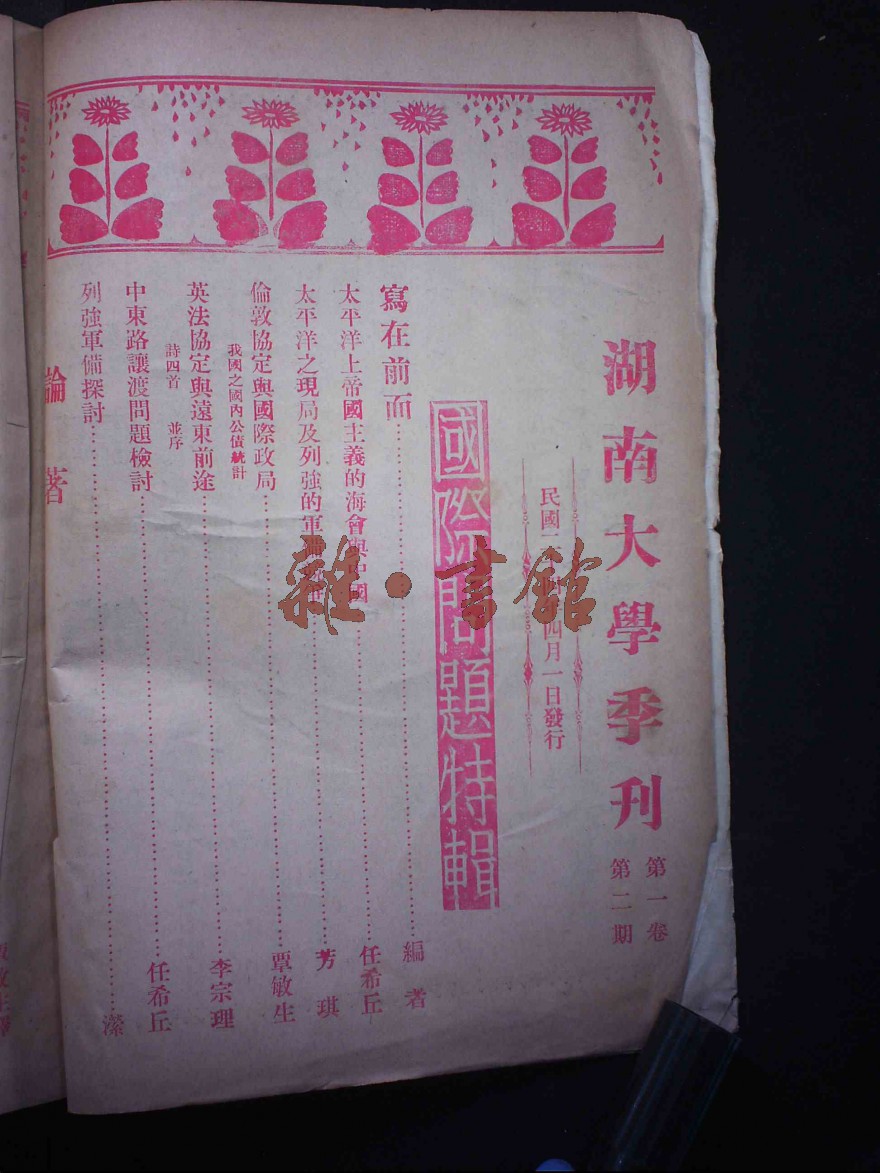 湖南大學季刊
第一卷
第二期
民國二十四年四月一日發行
國際問題特輯
寫在前面 編者
太平洋上帝國主義的海會與中國 任希丘
太平洋之現局及列強的軍備 芳琪
倫敦協定與國際政局 覃敏生
我國之國內公債統計
英法協定與遠東前途 李宗理
詩四首 並序
中東路讓渡問題檢討 任希丘
列強軍備探討 濴
論著
雜·書館